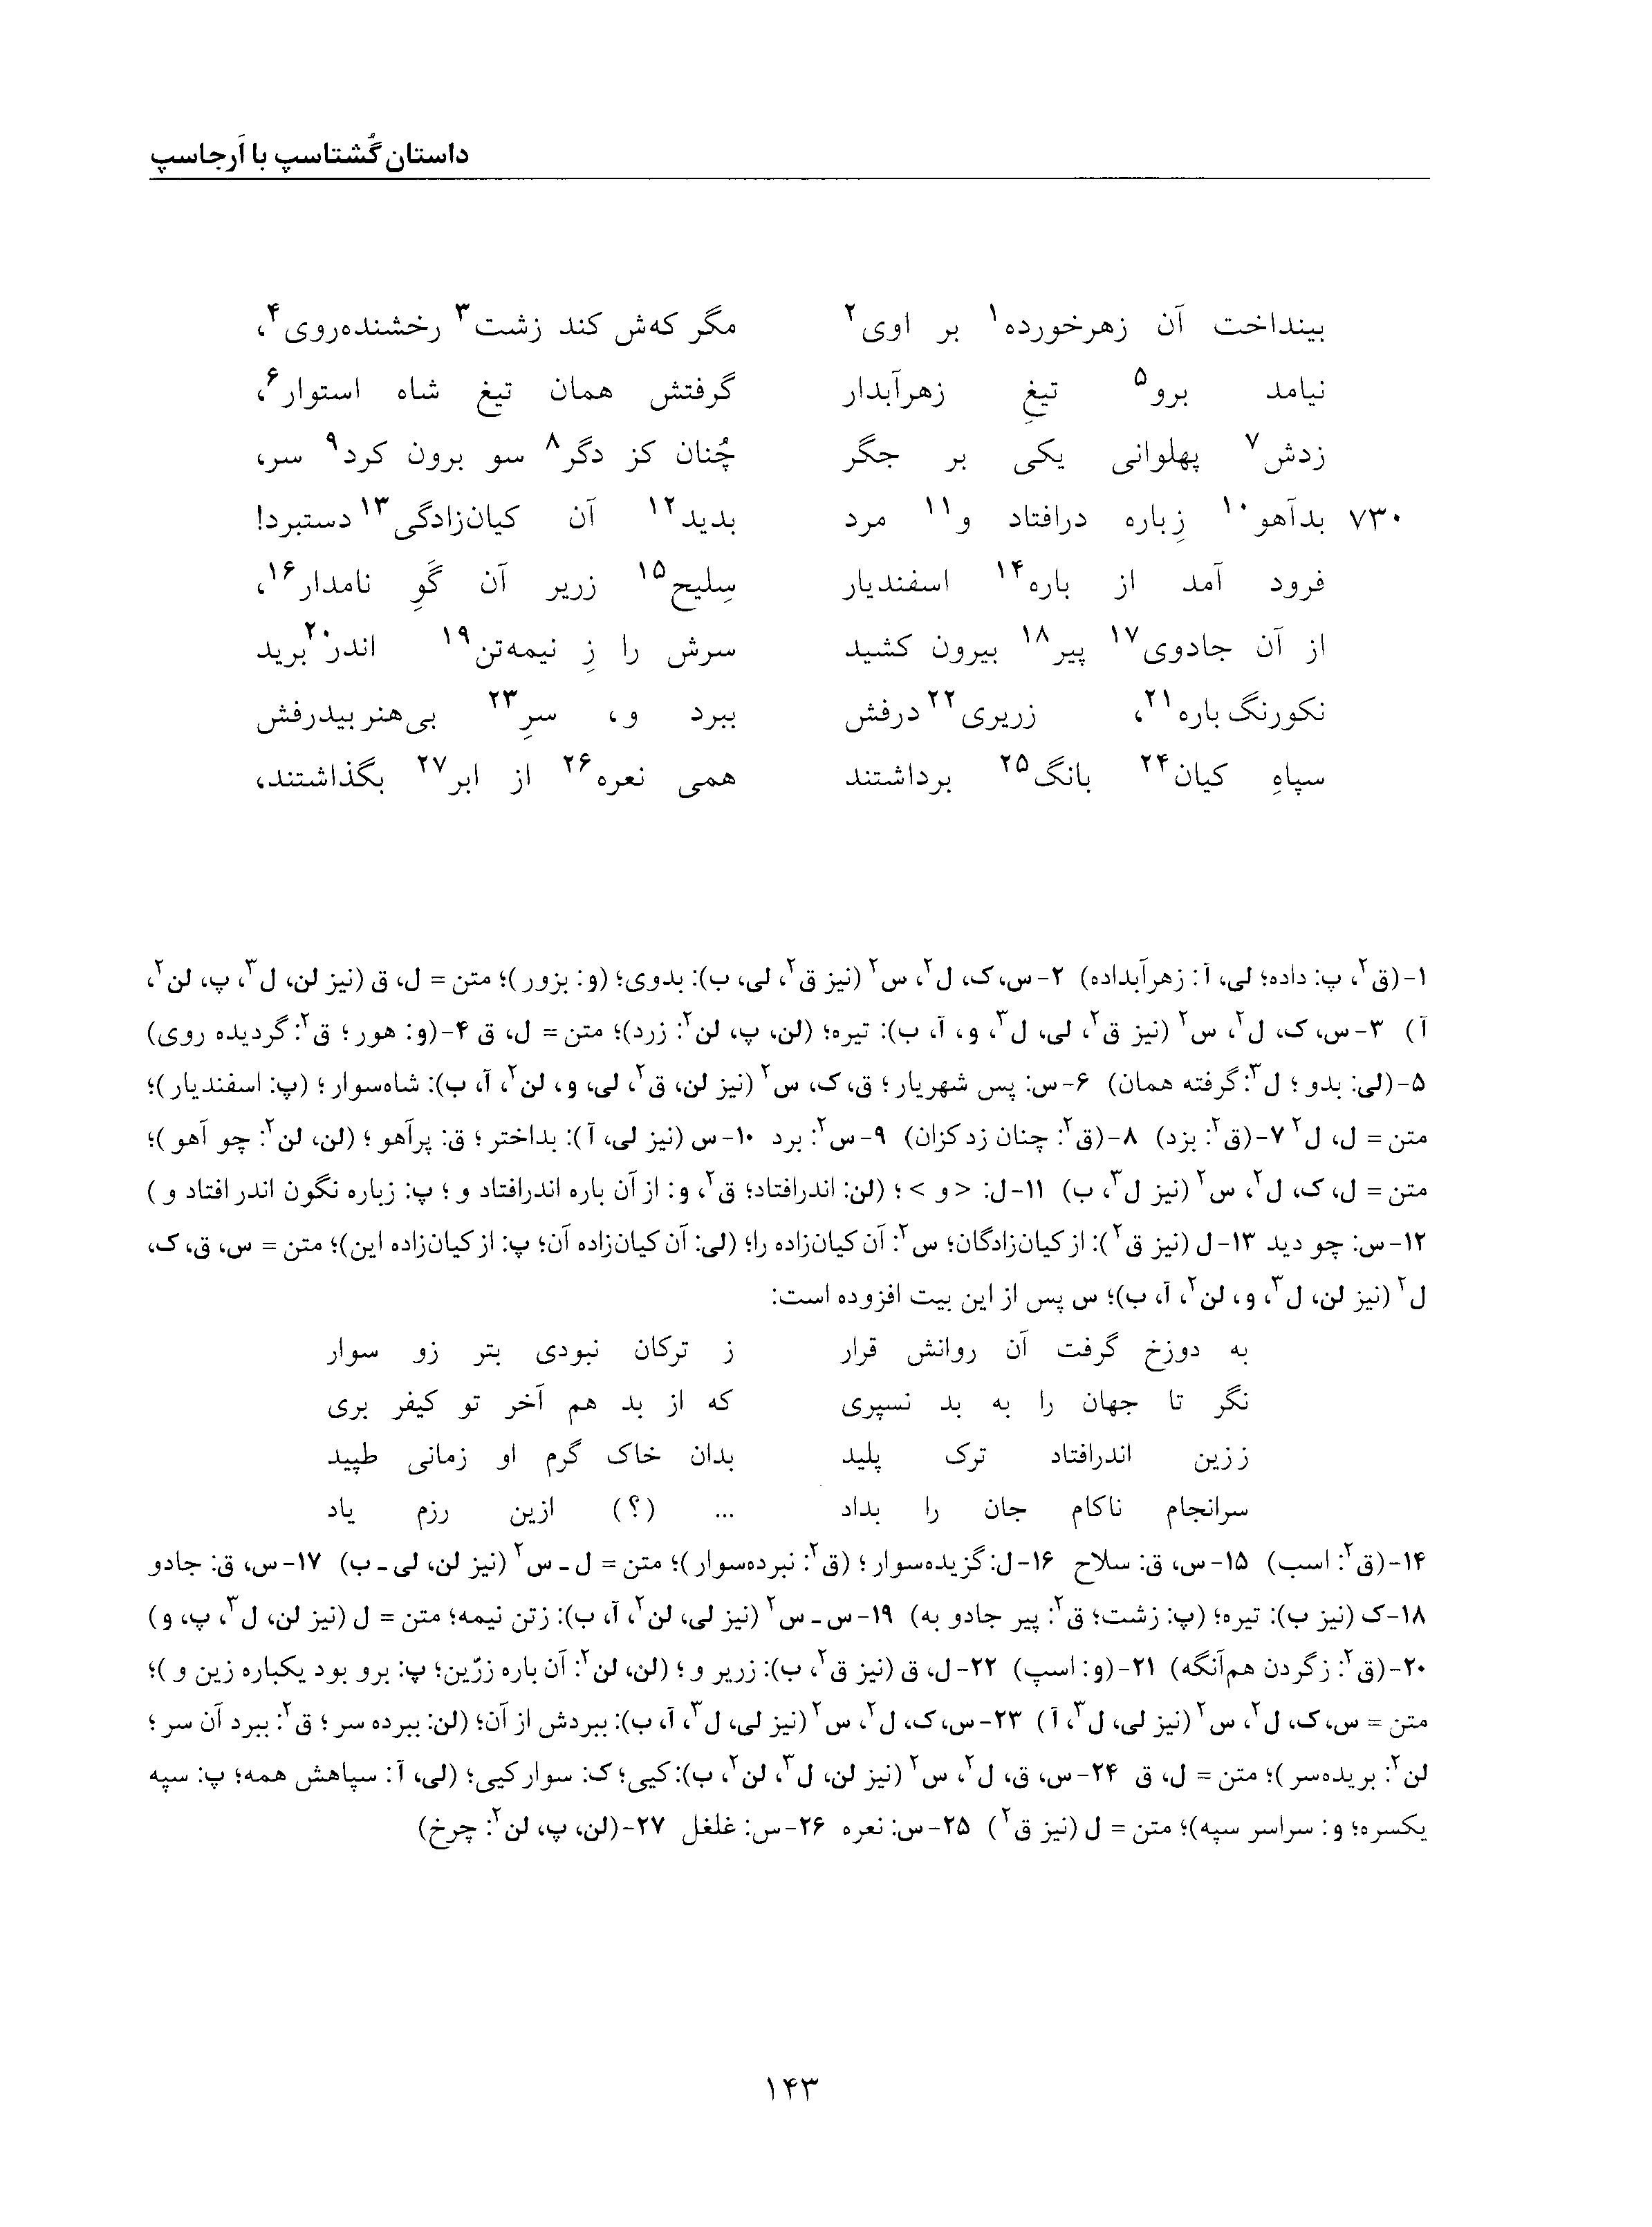 داستان گُشتاسپ با اَرجاسپ
بینداخت آن زهرخورده۱ بر اوی۲ مگر که‌ش کند زشت۳ رخشنده‌روی۴،
نیامد برو۵ تیغِ زهرآبدار گرفتش همان تیغ شاه استوار۶،
زدش۷ پهلوانی یکی بر جگر چُنان کز دگر۸ سو برون کرد۹ سر،
۷۳۰ بدآهو۱۰ زِباره درافتاد و۱۱ مرد بدید۱۲ آن کیان‌زادگی۱۳ دستبرد!
فرود آمد از باره۱۴ اسفندیار سِلیح۱۵ زریر آن گَوِ نامدار۱۶،
از آن جادوی۱۷ پیر۱۸ بیرون کشید سرش را زِ نیمه‌تن۱۹ اندر۲۰ برید
نکورنگ باره۲۱، زریری۲۲ درفش ببرد و، سرِ۲۳ بی‌هنر بیدرفش
سپاهِ کیان۲۴ بانگ۲۵ برداشتند همی نعره۲۶ از ابر۲۷ بگذاشتند،
۱-(ق۲، پ: داده؛ لی، آ: زهرآبداده) ۲-س، ک، ل۲، س۲ (نیز ق۲، لی، ب): بدوی؛ (و: بزور)؛ متن = ل، ق (نیز لن، ل۳، پ، لن۲،
آ) ۳-س، ک، ل۲، س۲ (نیز ق۲، لی، ل۳، و، آ، ب): تیره؛ (لن، پ، لن۲: زرد)؛ متن = ل، ق ۴-(و: هور؛ ق۲: گردیده روی)
۵-(لی: بدو؛ ل۳: گرفته همان) ۶-س: پس شهریار؛ ق، ک، س۲ (نیز لن، ق۲، لی، و، لن۲، آ، ب): شاه‌سوار؛ (پ: اسفندیار)؛
متن = ل، ل۲ ۷-(ق۲: بزد) ۸-(ق۲: چنان زد کزان) ۹-س۲: برد ۱۰-س (نیز لی، آ): بداختر؛ ق: پرآهو؛ (لن، لن۲: چو آهو)؛
متن = ل، ک، ل۲، س۲ (نیز ل۳، ب) ۱۱-ل: <و>؛ (لن: اندرافتاد؛ ق۲، و: از آن باره اندرافتاد و؛ پ: زباره نگون اندر افتاد و)
۱۲-س: چو دید ۱۳-ل (نیز ق۲): از کیان‌زادگان؛ س۲: آن کیان‌زاده را؛ (لی: آن کیان‌زاده آن؛ پ: از کیان‌زاده این)؛ متن = س، ق، ک،
ل۲ (نیز لن، ل۳، و، لن۲، آ، ب)؛ س پس از این بیت افزوده است:
به دوزخ گرفت آن روانش قرار ز ترکان نبودی بتر زو سوار
نگر تا جهان را به بد نسپری که از بد هم آخر تو کیفر بری
ززین اندرافتاد ترک پلید بدان خاک گرم او زمانی طپید
سرانجام ناکام جان را بداد ... (؟) ازین رزم یاد
۱۴-(ق۲: اسب) ۱۵-س، ق: سلاح ۱۶-ل: گزیده‌سوار؛ (ق۲: نبرده‌سوار)؛ متن = ل ـ س۲ (نیز لن، لی ـ ب) ۱۷-س، ق: جادو
۱۸-ک (نیز ب): تیره؛ (پ: زشت؛ ق۲: پیر جادو به) ۱۹-س ـ س۲ (نیز لی، لن۲، آ، ب): زتن نیمه؛ متن = ل (نیز لن، ل۳، پ، و)
۲۰-(ق۲: زگردن هم‌آنگه) ۲۱-(و: اسپ) ۲۲-ل، ق (نیز ق۲، ب): زریر و؛ (لن، لن۲: آن باره زرّین؛ پ: برو بود یکباره زین و)؛
متن = س، ک، ل۲، س۲ (نیز لی، ل۳، آ) ۲۳-س، ک، ل۲، س۲ (نیز لی، ل۳، آ، ب): ببردش از آن؛ (لن: ببرده سر؛ ق۲: ببرد آن سر؛
لن۲: بریده‌سر)؛ متن = ل، ق ۲۴-س، ق، ل۲، س۲ (نیز لن، ل۳، لن۲، ب): کیی؛ ک: سوار کیی؛ (لی، آ: سپاهش همه؛ پ: سپه
یکسره؛ و: سراسر سپه)؛ متن = ل (نیز ق۲) ۲۵-س: نعره ۲۶-س: غلغل ۲۷-(لن، پ، لن۲: چرخ)
۱۴۳